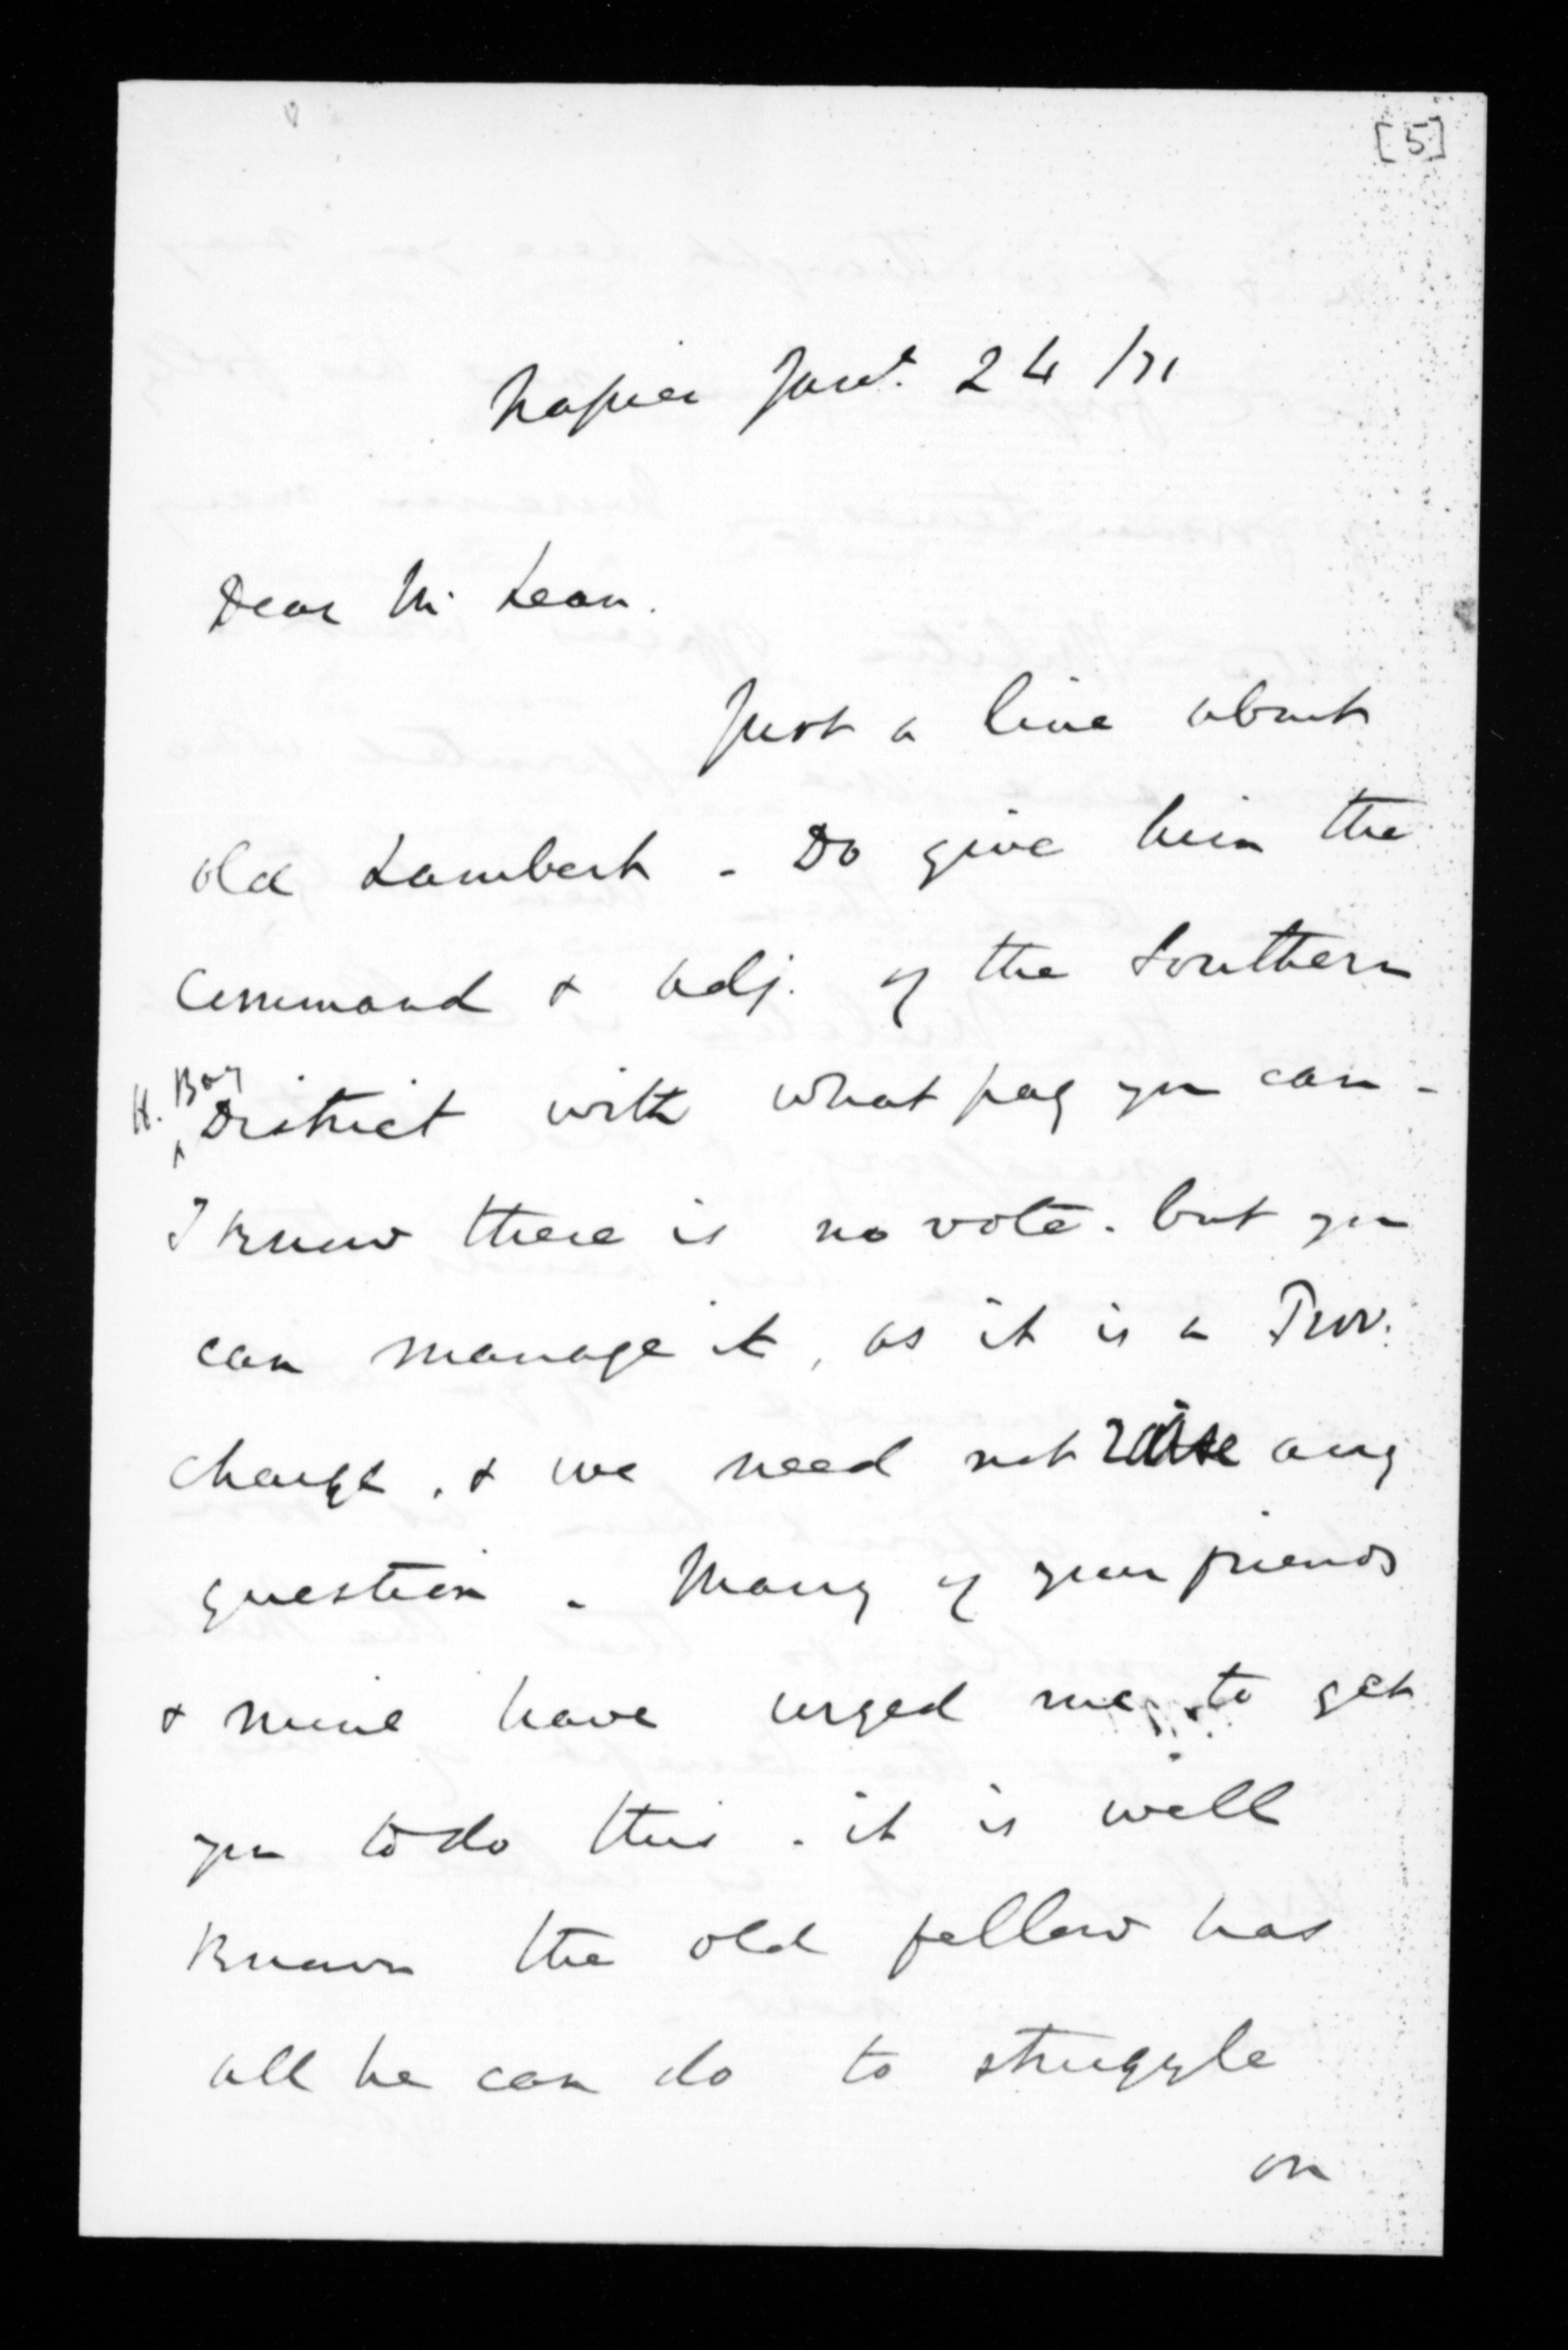 [5]
Napier Jany. 24 /71
Dear Mc Lean.
Just a line about
old Lambert - Do give him the
Command & Adj. of the Southern
H. Bay
District with what pay you can -
I know there is no vote. but you
can manage it, as it is a Prov.
charge, & we need not raise any
question - Many of your friends
& mine have urged me to get
you to do this - it is well
known the old fellow has
all he can do to struggle
on